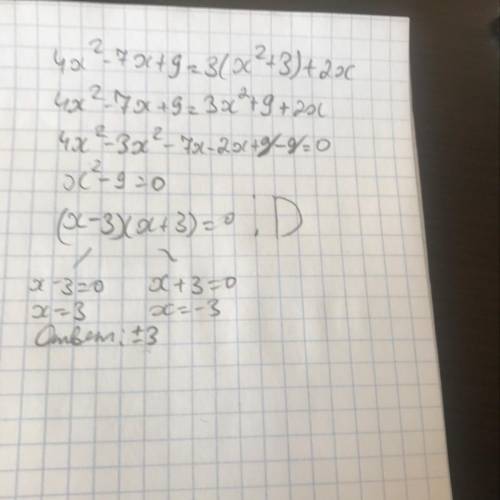 4x²-7x+9=3(x²+3)+2x
4x²-7x+9=3x²+9+2x
4x²-3x²-7x-2x+9-9=0
x²-9=0
(x-3)(x+3)=0 :D
x-3=0 x+3=0
x=3 x=-3
Ответ: ±3